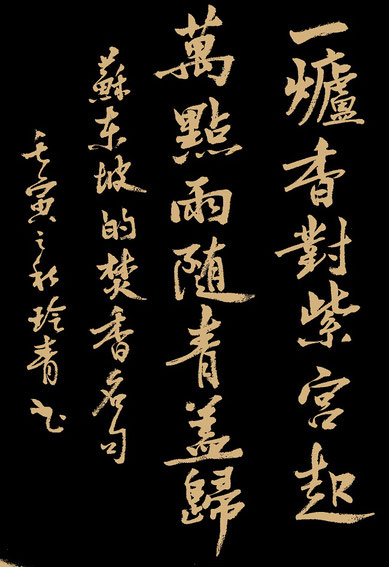 一爐香對紫宮起
萬點雨随青盖歸
蘇东坡的焚香名句
壬寅之秋玲青书